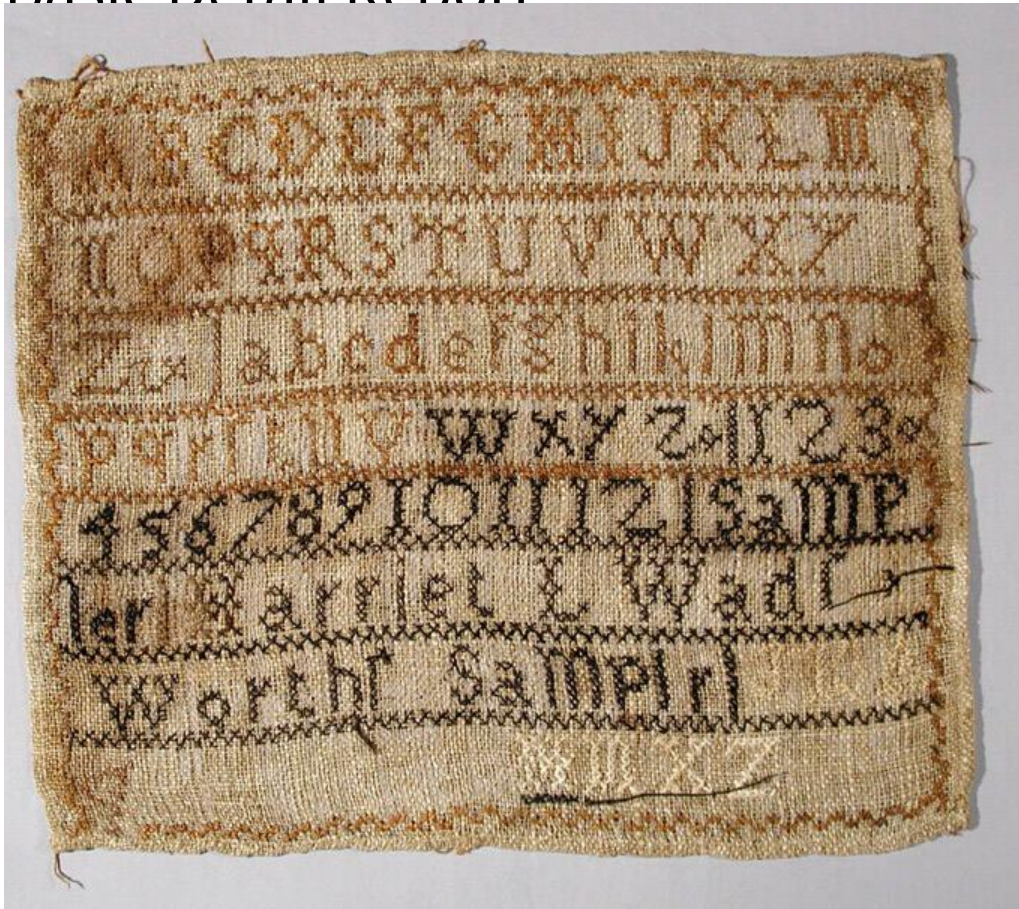 A B C D E F G H I J K L M
n O P q R S T U V W X Y
Z & a b c d e f g h i k l m n o
p q r s t u V W X Y Z & 1 2 3
4 5 6 7 8 9 10 11 12 Samp
ler Harriet L Wad
Worth Samplr
W m X Z